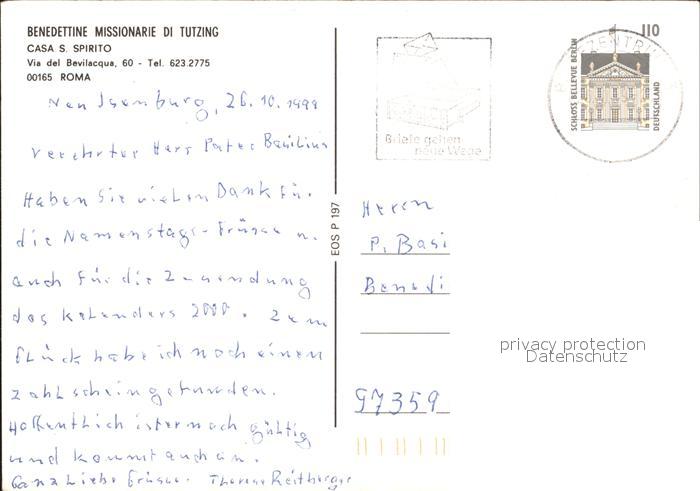 BENEDETTINE MISSIONARIE DI TUTZING
CASA S. SPIRITO
Via del Bevilacqua, 60 - Tel. 623.2775
00165 ROMA
Neu Isenburg, 26.10.1999
Verehrter Herr Pater Basilius
Haben Sie vielen Dank für
die Namenstags-Grüsse u.
auch für die Zusendung
des Kalenders 2000. Zum
Glück habe ich noch einen
Zahlschein gefunden.
Hoffentlich ist er noch gültig
und kommt auch an.
Ganz Liebe Grüsse. Therese
EOS P 197
Briefe gehen
neue Wege
BRIEFZENTRUM
110
SCHLOSS BELLEVUE BERLIN
DEUTSCHLAND
Herrn
P. Basi
Benedi
97359
privacy protection
Datenschutz